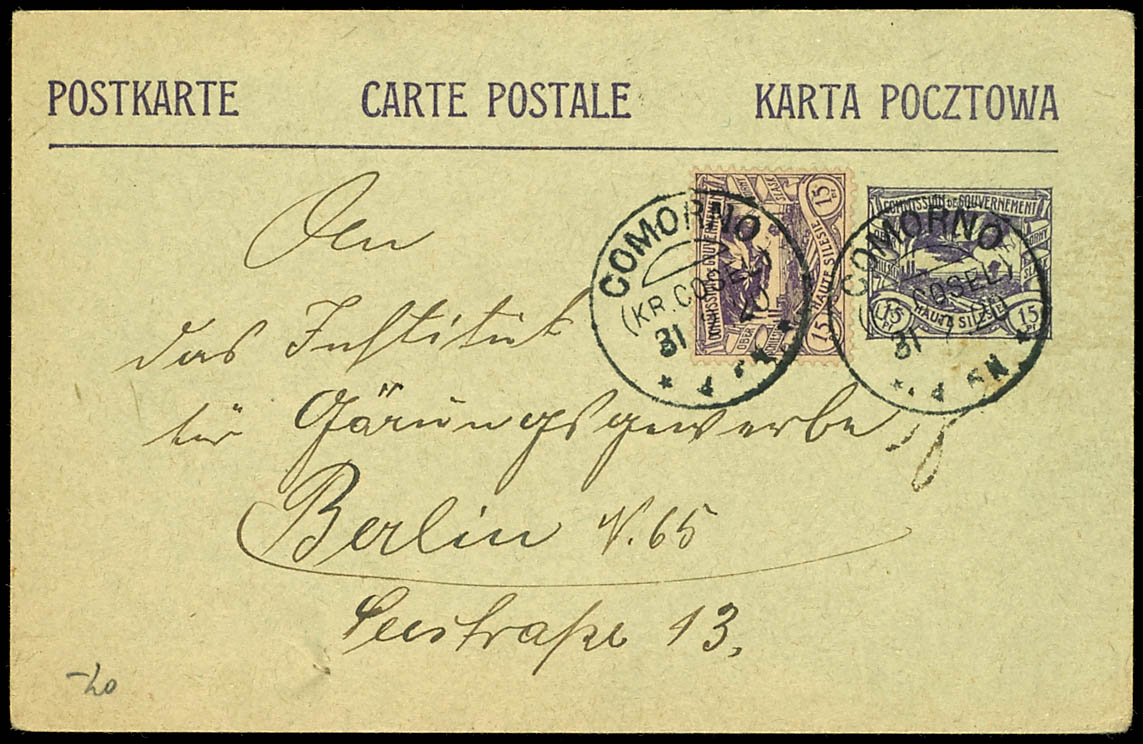 POSTKARTE CARTE POSTALE KARTA POCZTOWA
COMMISSION DE GOUVERNEMENT
HAUTE SILESIE
15
15
COMMISSION DE GOUVERNEMENT
HAUTE SILESIE
15
15
COMORNO
(KR. COSEL)
31 20
COMORNO
COSEL)
31
An
das Institut
für Gärungsgewerbe
Berlin N. 65
Seestraße 13.